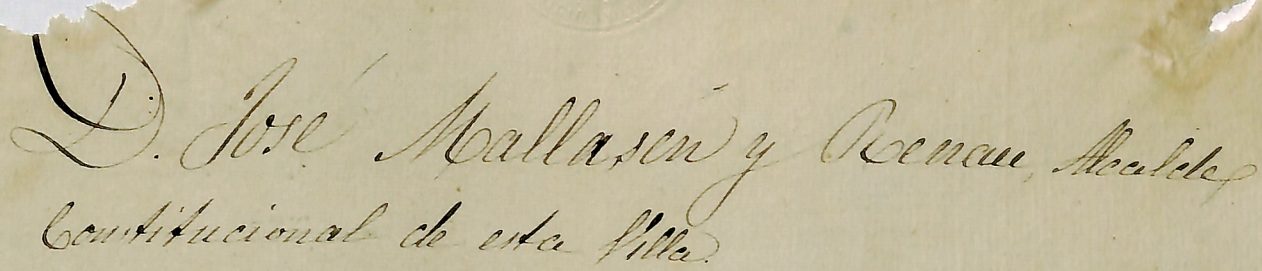 D. José Mallasén y Renau, Alcalde
Constitucional de esta Villa.